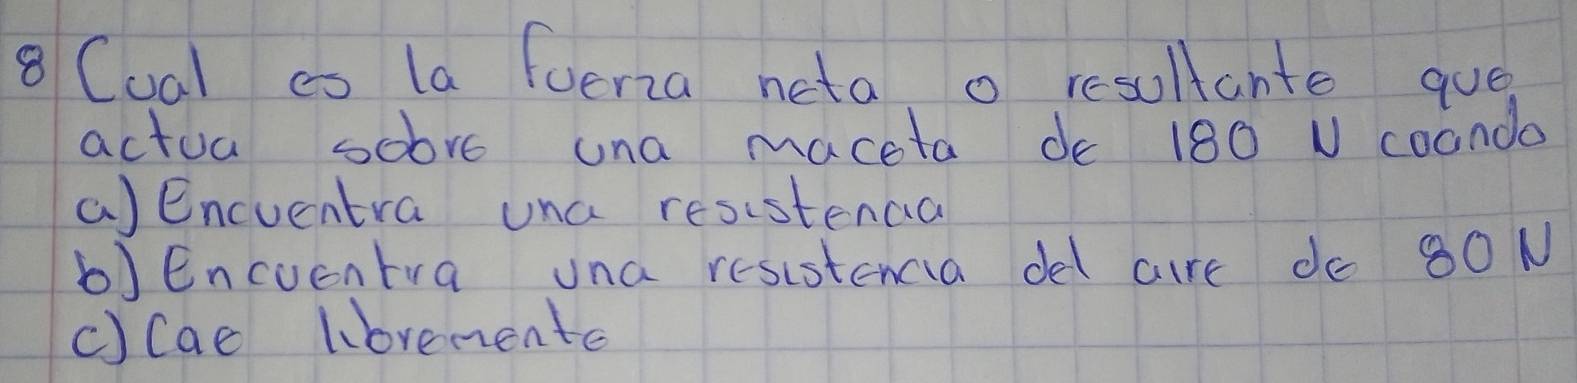 8 Cual es la fuerza neta o resultante que
actua sobre una maceta de 180 N coando
a) Encuentra una resistencia
b) Encuentra una resistencia del aire de 80 N
c) Cae libremente